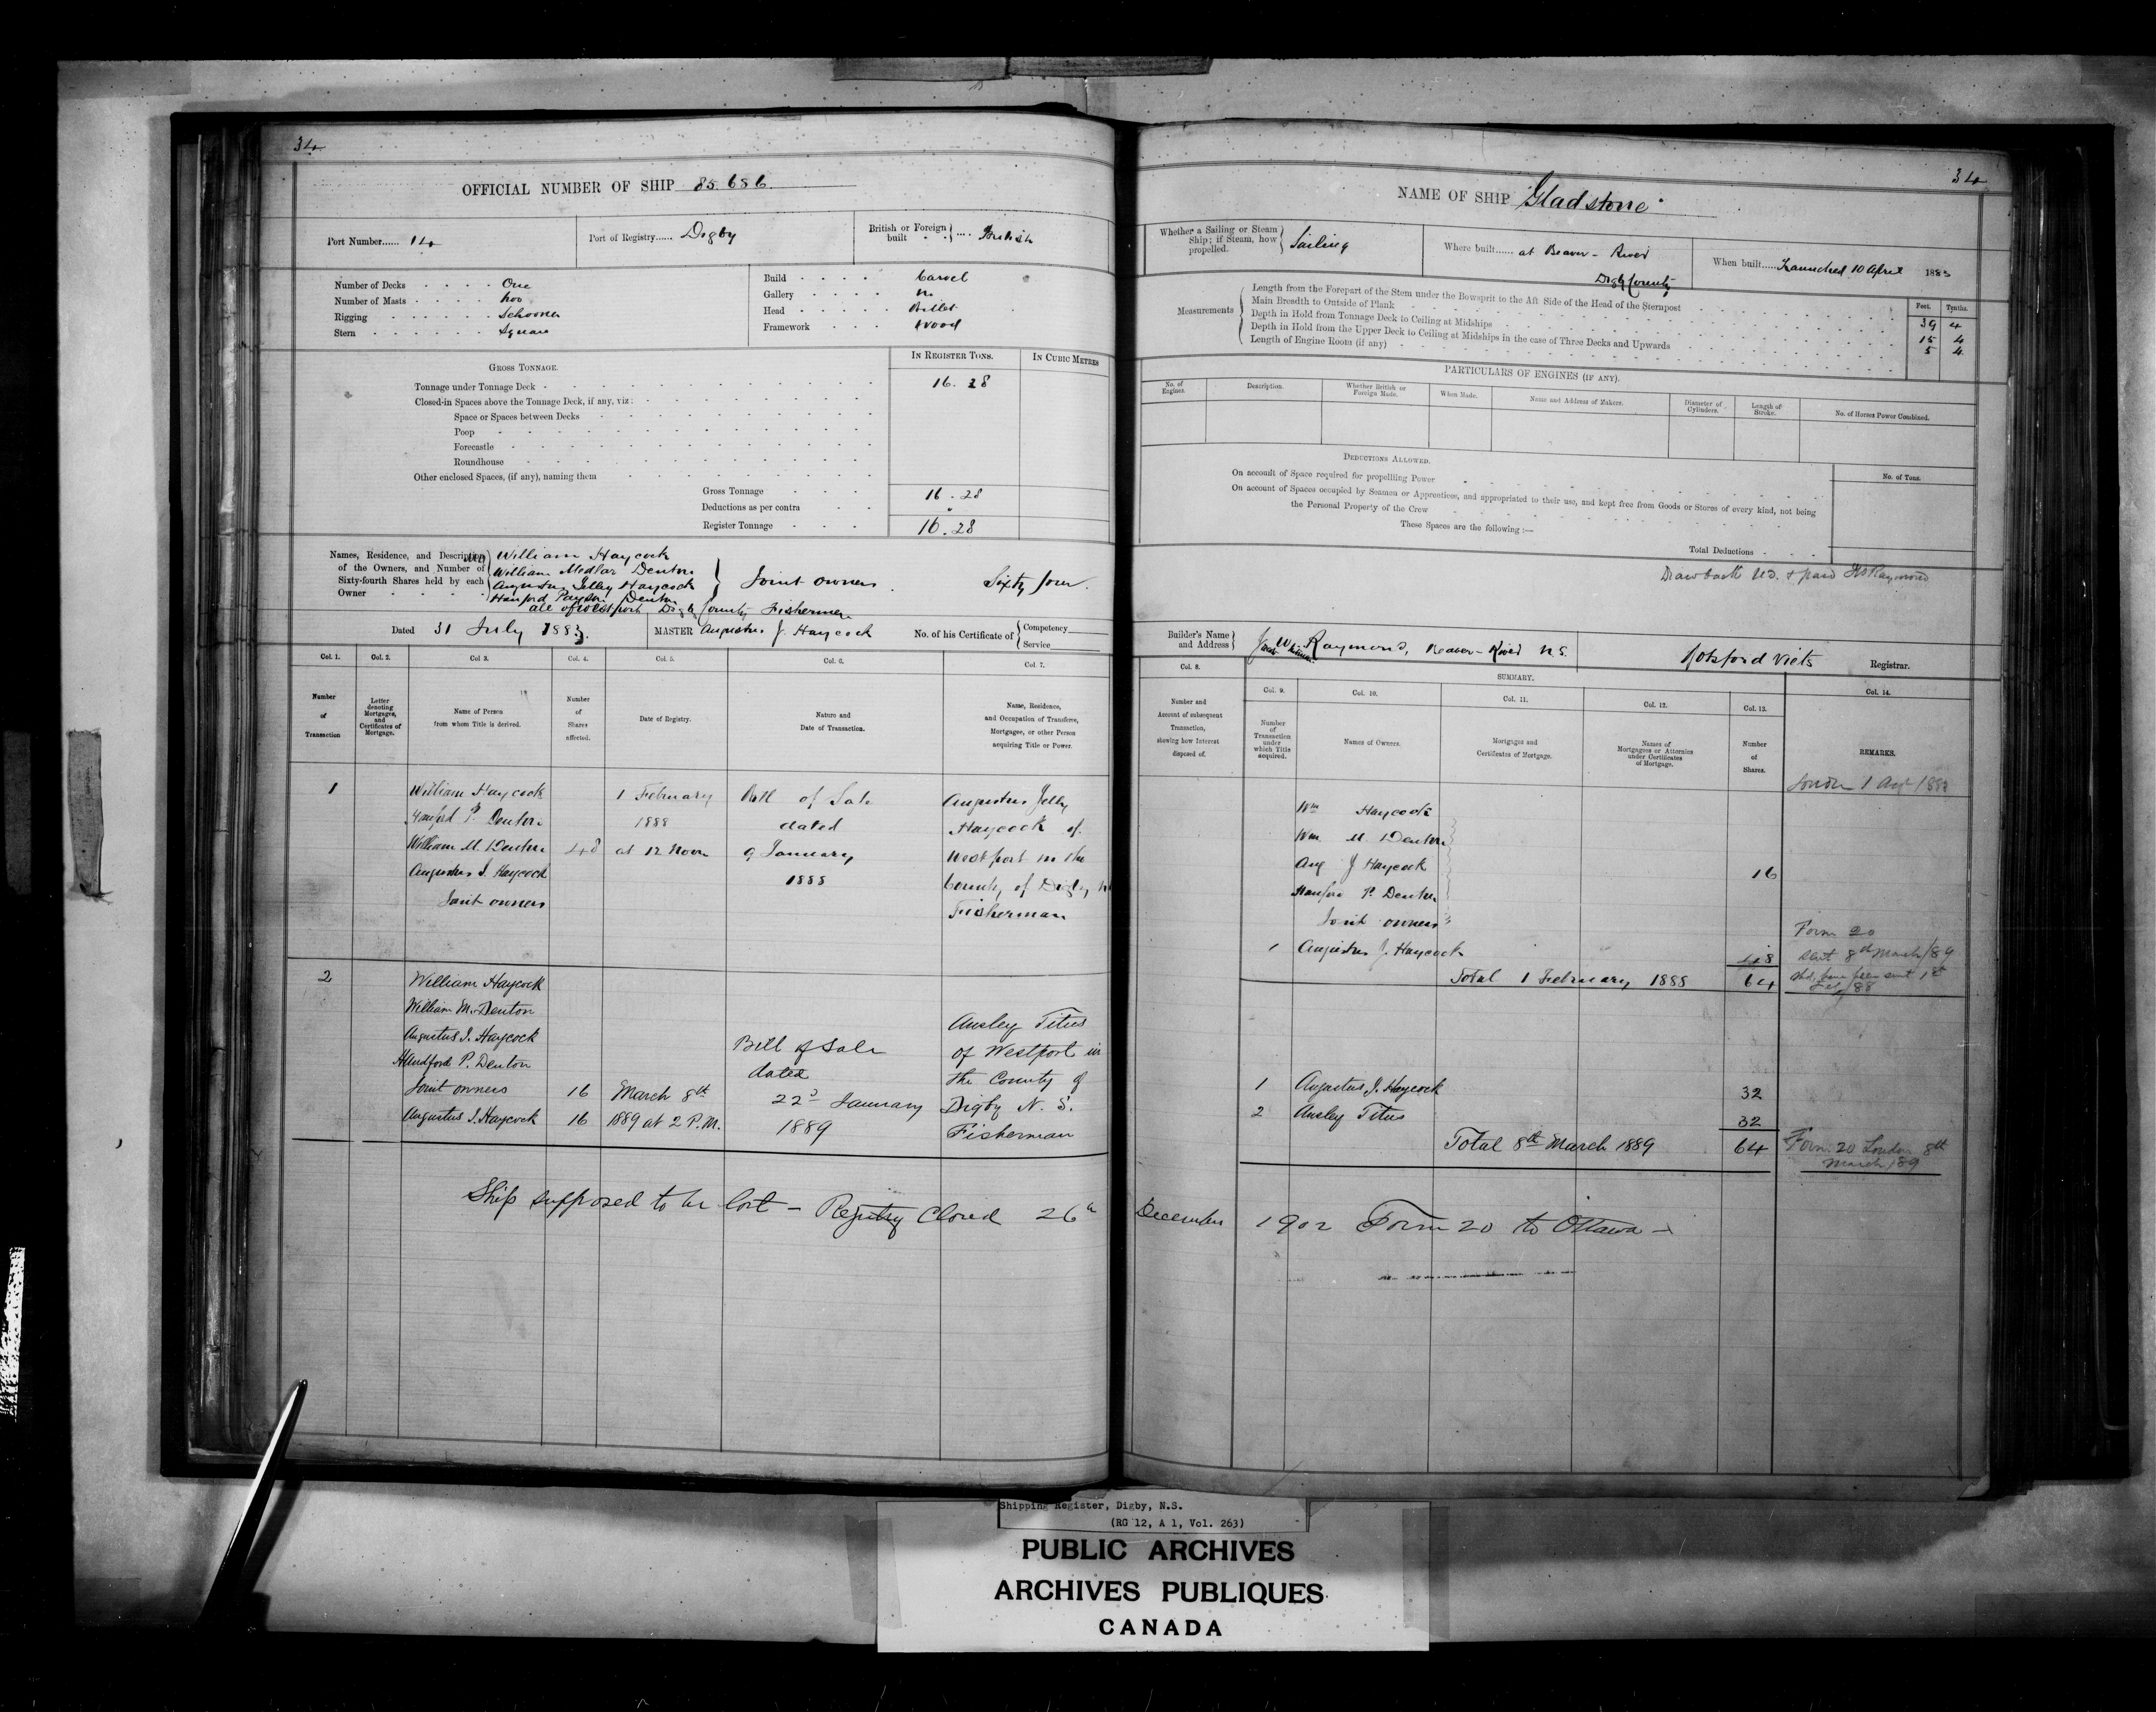 34
OFFICIAL NUMBER OF SHIP 85.686.
Port Number...... 14
Port of Registry...... Digby
British or Foreign built .... British
Number of Decks One
Number of Masts two
Rigging Schooner
Stern Square
Build Carvel
Gallery no
Head Billet
Framework Wood
GROSS TONNAGE.
IN REGISTER TONS.
IN CUBIC METRES
Tonnage under Tonnage Deck 16.28
Closed-in Spaces above the Tonnage Deck, if any, viz:
Space or Spaces between Decks
Poop
Forecastle
Roundhouse
Other enclosed Spaces, (if any), naming them
Gross Tonnage 16.28
Deductions as per contra "
Register Tonnage 16.28
Names, Residence, and Description of the Owners, and Number of Sixty-fourth Shares held by each Owner
William Haycock
William Medlar Denton
Augustus Jelly Haycock
Hanford Payson Denton
Joint owners Sixty four.
all of Westport Digby County Fishermen
Dated 31 July 1883.
MASTER Augustus J. Haycock
No. of his Certificate of { Competency
Service
Col. 1.
Col. 2.
Col. 3.
Col. 4.
Col. 5.
Col. 6.
Col. 7.
Number of Transaction
Letter denoting Mortgages, and Certificates of Mortgage.
Name of Person from whom Title is derived.
Number of Shares affected.
Date of Registry.
Nature and Date of Transaction.
Name, Residence, and Occupation of Transferee, Mortgagee, or other Person acquiring Title or Power.
1
William Haycock
Hanford P. Denton
William M. Denton
Augustus J. Haycock
Joint owners
48
1 February
1888
at 12 Noon
Bill of Sale
dated
9 January
1888
Augustus Jelly
Haycock of
Westport in the
County of Digby
Fisherman
2
William Haycock
William M. Denton
Augustus J. Haycock
Handford P. Denton
Joint owners 16
Augustus J. Haycock 16
March 8th
1889 at 2 P.M.
Bill of Sale
dated
22d January
1889
Ansley Titus
of Westport in
the County of
Digby N. S.
Fisherman
Ship supposed to be lost – Registry Closed 26th December 1902 Form 20 to Ottawa –
34
NAME OF SHIP Gladstone
Whether a Sailing or Steam Ship; if Steam, how propelled. } Sailing
Where built...... at Beaver-River
Digby County
When built..... Launched 10 April 1883
Measurements
Feet.
Tenths.
Length from the Forepart of the Stem under the Bowsprit to the Aft Side of the Head of the Sternpost 39 4
Main Breadth to Outside of Plank 15 4
Depth in Hold from Tonnage Deck to Ceiling at Midships 5 4
Depth in Hold from the Upper Deck to Ceiling at Midships in the case of Three Decks and Upwards
Length of Engine Room (if any)
PARTICULARS OF ENGINES (IF ANY).
No. of Engines.
Description.
Whether British or Foreign Made.
When Made.
Name and Address of Makers.
Diameter of Cylinders.
Length of Stroke.
No. of Horses Power Combined.
DEDUCTIONS ALLOWED.
No. of Tons.
On account of Space required for propelling Power
On account of Spaces occupied by Seamen or Apprentices, and appropriated to their use, and kept free from Goods or Stores of every kind, not being
the Personal Property of the Crew
These Spaces are the following:—
Total Deductions
Drawback paid Raymond
Builder's Name and Address } Raymond, Beaver-River N.S.
Botsford Viets Registrar.
Col. 8.
SUMMARY.
Col. 9.
Col. 10.
Col. 11.
Col. 12.
Col. 13.
Col. 14.
Number and Account of subsequent Transaction, showing how Interest disposed of.
Number of Transaction under which Title acquired.
Names of Owners.
Mortgages and Certificates of Mortgage.
Names of Mortgagees or Attornies under Certificates of Mortgage.
Number of Shares.
REMARKS.
London 1 Augt 1883
Wm Haycock
Wm M. Denton
Aug J Haycock
Hanford P. Denton
Joint owners
16
1 Augustus J. Haycock 48
Total 1 February 1888 64
Form 20
sent 8th March/89
Shd. have been sent 1st
Feb/88
1 Augustus J. Haycock 32
2 Ansley Titus 32
Total 8th March 1889 64
Form 20 London 8th
March/89
Shipping Register, Digby, N.S.
(RG 12, A 1, Vol. 263)
PUBLIC ARCHIVES
ARCHIVES PUBLIQUES
CANADA